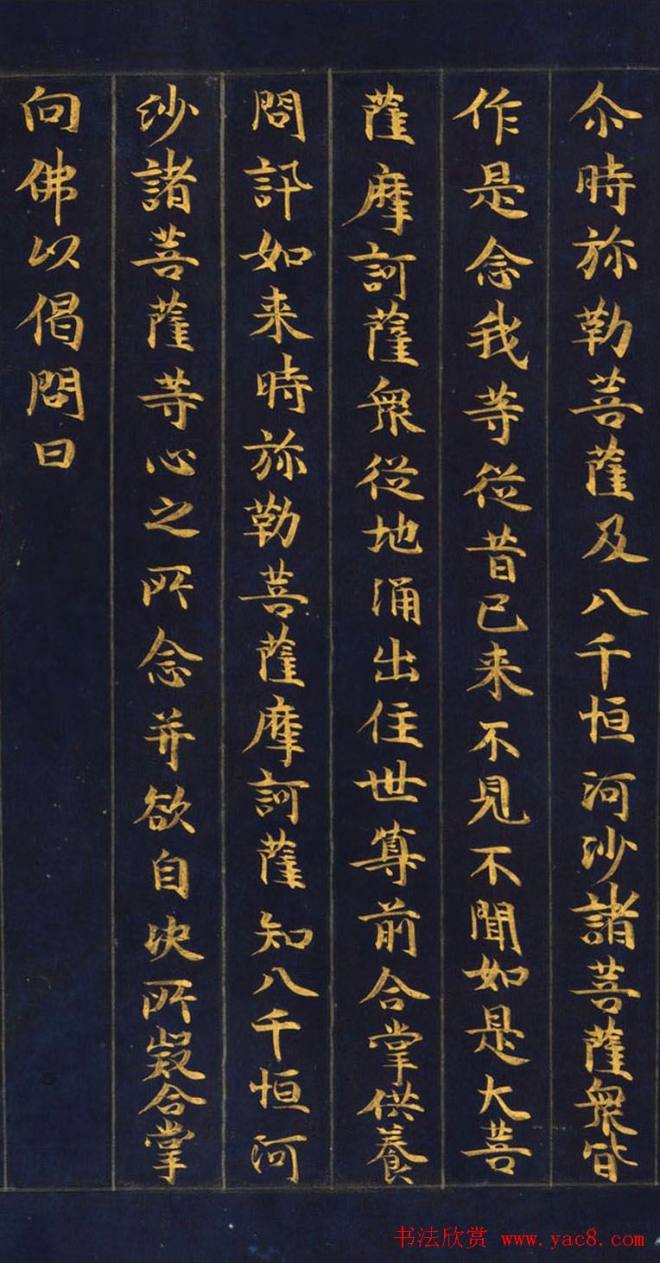 尒時弥勒菩薩及八千恒河沙諸菩薩衆皆
作是念我等從昔已来不見不聞如是大菩
薩摩訶薩衆從地涌出住世尊前合掌供養
問訊如来時弥勒菩薩摩訶薩知八千恒河
沙諸菩薩等心之所念并欲自决所疑合掌
向佛以偈問曰
书法欣赏 www.yac8.com